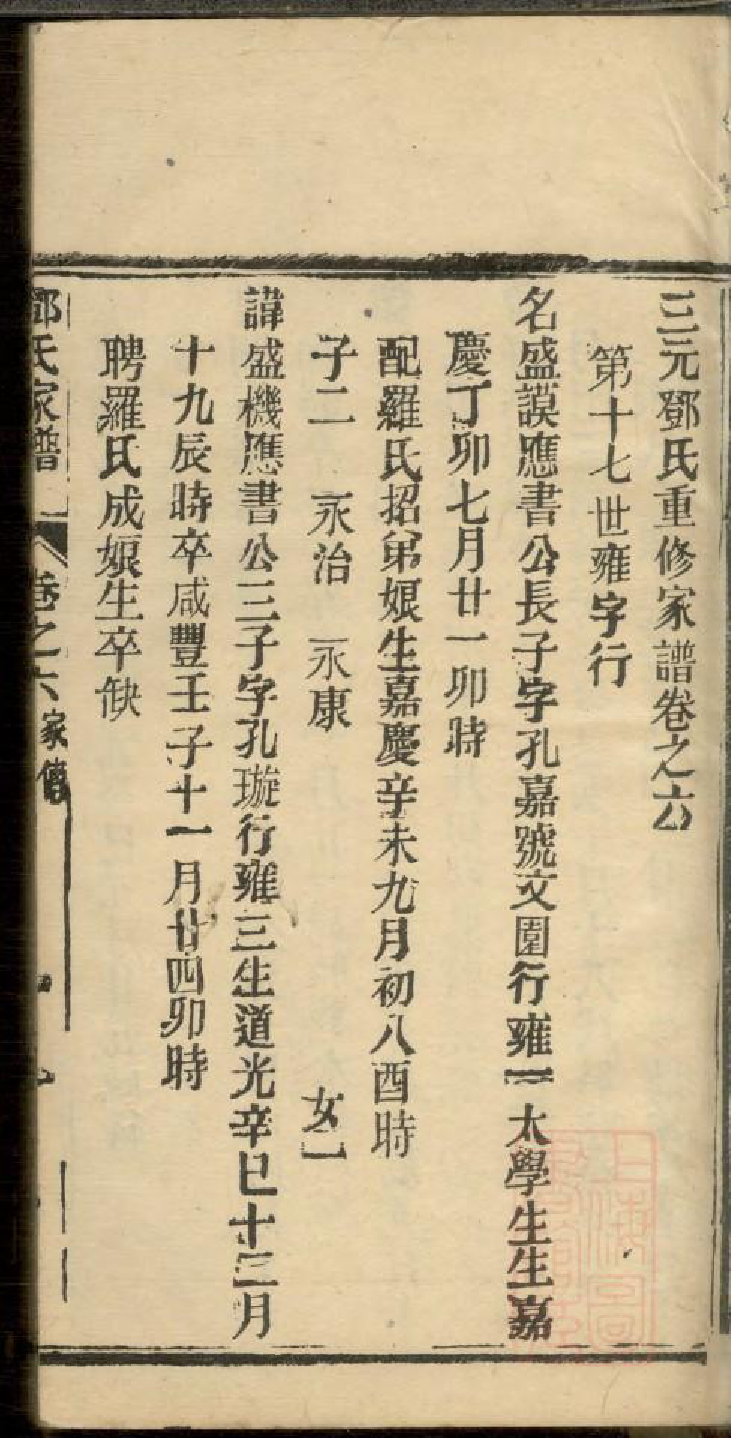 三元鄧氏重修家譜卷之六
第十七世雍字行
名盛謨應書公長子字孔嘉號文園行雍一太學生生嘉
慶丁卯七月廿一卯時
配羅氏招弟娘生嘉慶辛未九月初八酉時
子二 永治 永康 女一
諱盛機應書公三子字孔璇行雍三生道光辛巳十二月
十九辰時卒咸豐壬子十一月廿四卯時
聘羅氏成娘生卒缺
鄧氏家譜 卷之六 家傳
上海圖書館藏